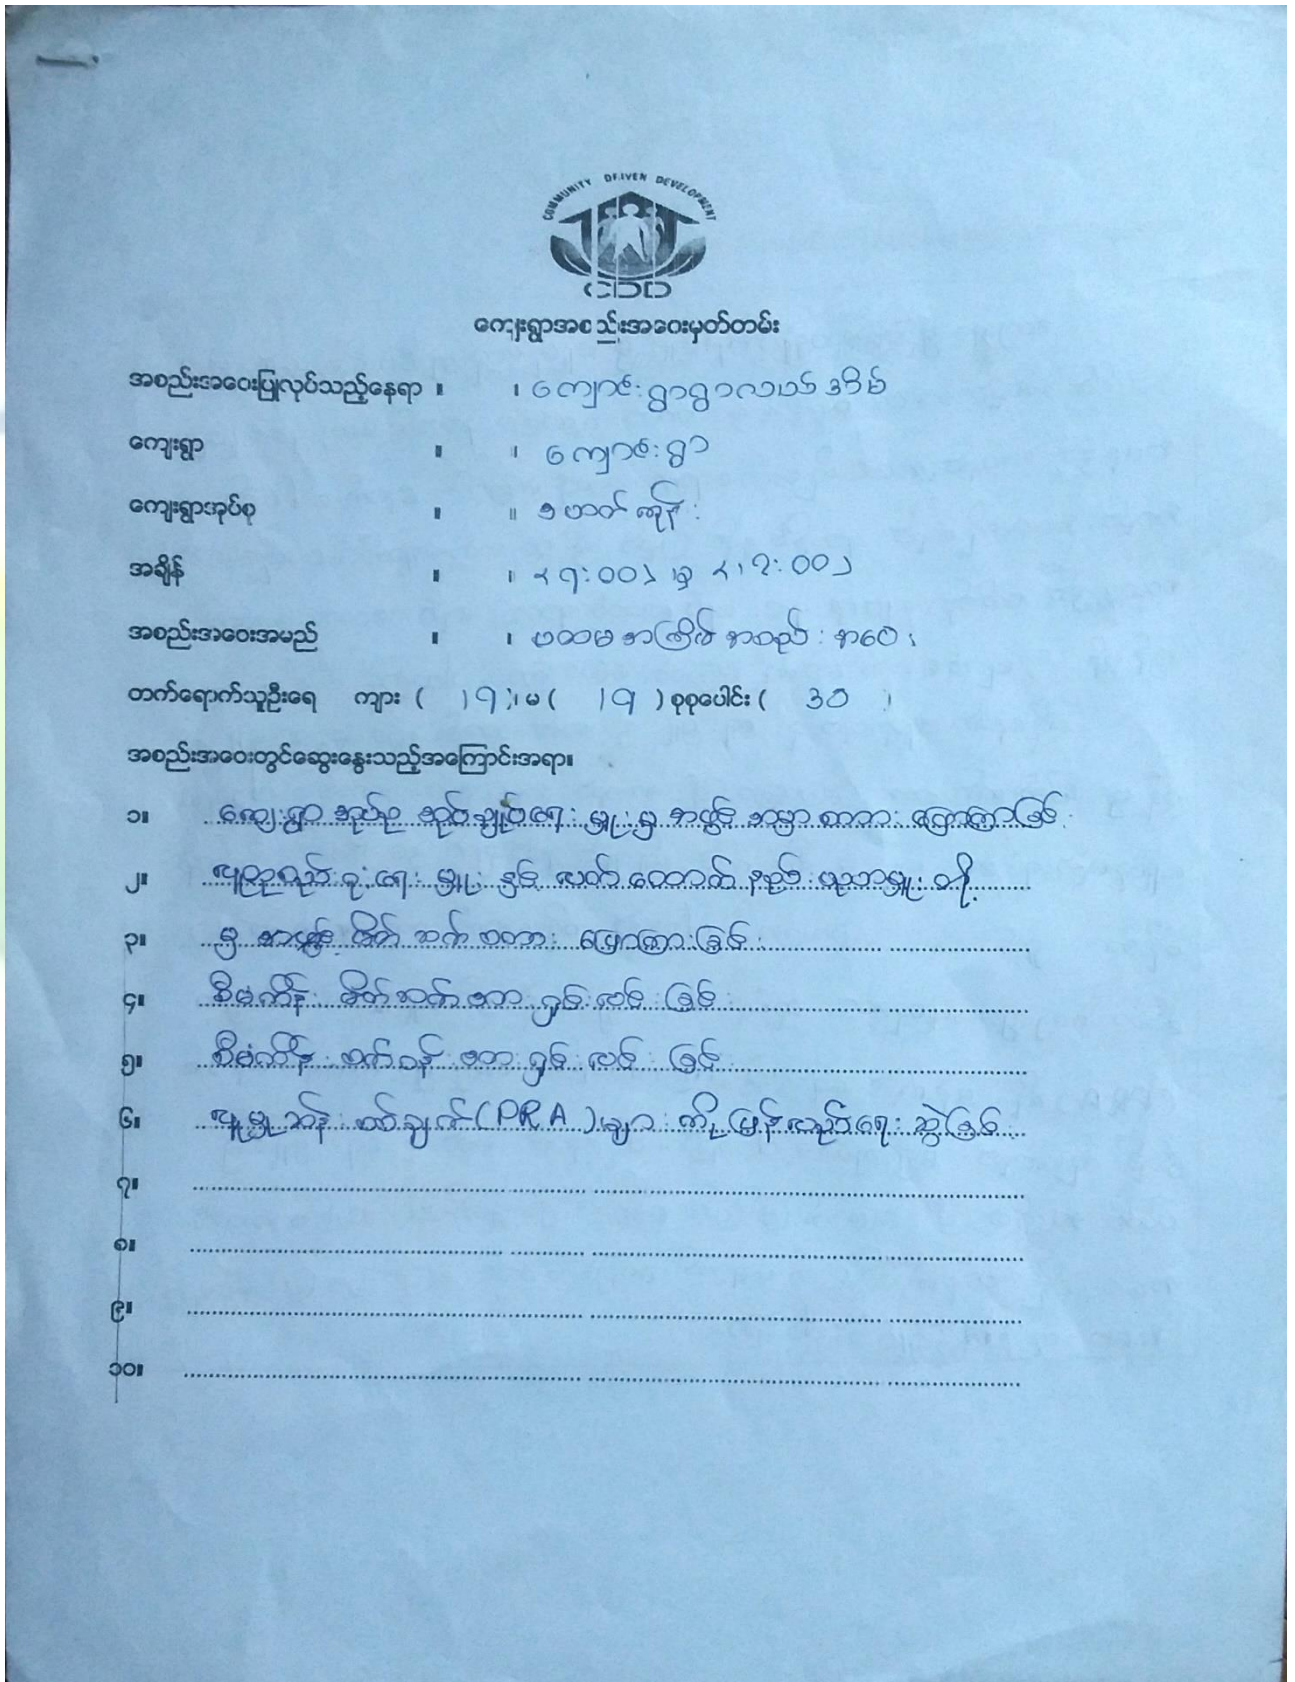 COMMUNITY DRIVEN DEVELOPMENT
CDD
ကျေးရွာအစည်းအဝေးမှတ်တမ်း
အစည်းအဝေးပြုလုပ်သည့်နေရာ ။ ။ ကျောင်းရွာရွာလယ်အိမ်
ကျေးရွာ ။ ။ ကျောင်းရွာ
ကျေးရွာအုပ်စု ။ ။
အချိန် ။ ။
အစည်းအဝေးအမည် ။ ။ ပထမအကြိမ်အစည်းအဝေး
တက်ရောက်သူဦးရေ ကျား ( ၁၇ )၊ မ ( ) စုစုပေါင်း ( )
အစည်းအဝေးတွင်ဆွေးနွေးသည့်အကြောင်းအရာ။
၁။ ကျေးရွာအုပ်စု အုပ်ချုပ်ရေးမှူးမှ အဖွင့်အမှာစကားပြောကြားခြင်း
၂။ နှင့် လက်ထောက်နည်းပညာမှူးတို့
၃။ မှ အဖွင့် မိတ်ဆက်စကားပြောကြားခြင်း
၄။ စီမံကိန်းမိတ်ဆက် ရှင်းလင်းခြင်း
၅။ စီမံကိန်း ရှင်းလင်းခြင်း
၆။ လူမှုဆန်းစစ်ချက် (PRA) များကို ပြန်လည်ရေးဆွဲခြင်း
၇။
၈။
၉။
၁၀။